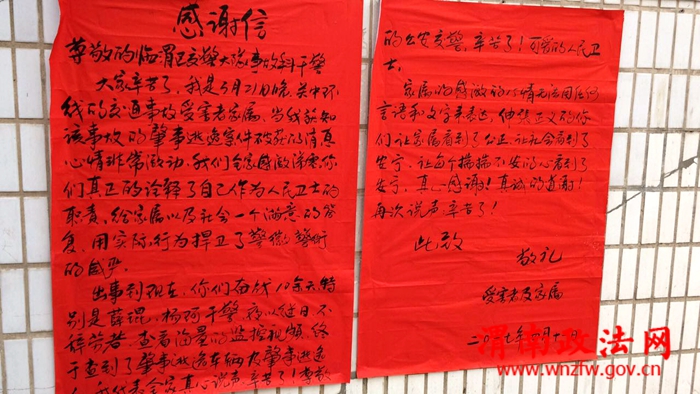 感谢信
尊敬的临渭区交警大队事故科干警
大家辛苦了，我是3月21日晚，关中环
线的交通事故受害者家属，当我获知
该事故的肇事逃逸案件破获的消息
心情非常激动，我们全家感激涕零你
们真正的诠释了自己作为人民卫士的
职责，给家属以及社会一个满意的答
复，用实际行为捍卫了警徽警衔
的威严。
出事到现在，你们奋战10余天特
别是薛琨、杨珂干警夜以继日不
辞劳苦，查看海量的监控视频，终
于查到了肇事逃逸车辆及肇事逃逸
我代表全家真心说声，辛苦了！尊敬
的公安交警，辛苦了！可爱的人民卫
士。
家属的感激的心情无法用任何
言语和文字来表达，伸张正义的你
们让家属看到了公正，让社会看到了
安宁，让每个揣揣不安的心看到了
安宁，真心感谢！真诚的道谢！
再次说声辛苦了！
此致
敬礼
受害者及家属
二〇一七年四月十
渭南政法网
www.wnzfw.gov.cn